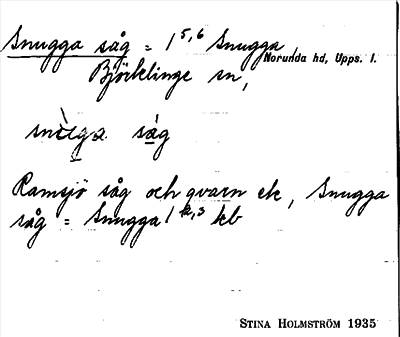 Snugga såg = 1 5,6 Snugga,
Norunda hd, Upps. l.
Björklinge sn,
såg
Ramsjö såg och qvarn ek, Snugga
såg = Snugga 1 k,3 kb
STINA HOLMSTRÖM 1935